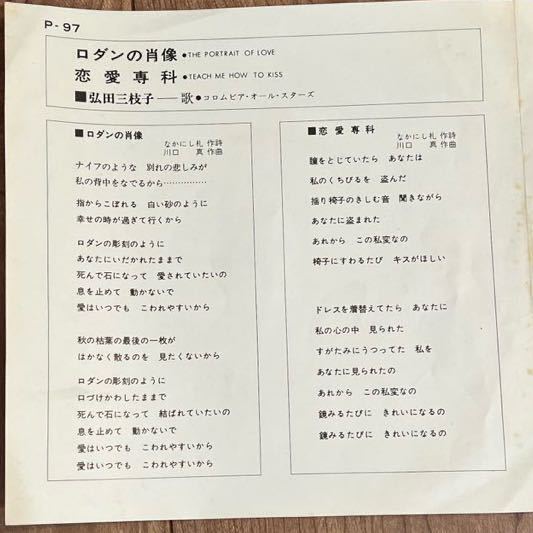 P-97
ロダンの肖像●THE PORTRAIT OF LOVE
恋愛専科●TEACH ME HOW TO KISS
■弘田三枝子──歌●コロムビア・オール・スターズ
■ロダンの肖像
なかにし礼 作詩
川口 真 作曲
ナイフのような 別れの悲しみが
私の背中をなでるから……………
指からこぼれる 白い砂のように
幸せの時が過ぎて行くから
ロダンの彫刻のように
あなたにいだかれたままで
死んで石になって 愛されていたいの
息を止めて 動かないで
愛はいつでも こわれやすいから
秋の枯葉の最後の一枚が
はかなく散るのを 見たくないから
ロダンの彫刻のように
口づけかわしたままで
死んで石になって 結ばれていたいの
息を止めて 動かないで
愛はいつでも こわれやすいから
愛はいつでも こわれやすいから
■恋愛専科
なかにし礼 作詩
川口 真 作曲
瞳をとじていたら あなたは
私のくちびるを 盗んだ
揺り椅子のきしむ音 聞きながら
あなたに盗まれた
あれから この私変なの
椅子にすわるたび キスがほしい
ドレスを着替えてたら あなたに
私の心の中 見られた
すがたみにうつってた 私を
あなたに見られたの
あれから この私変なの
鏡みるたびに きれいになるの
鏡みるたびに きれいになるの